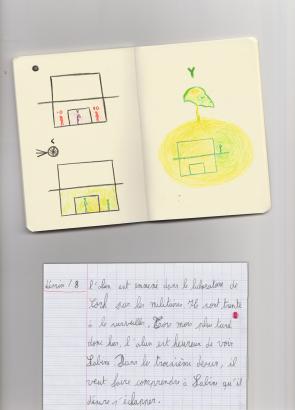 Y
dessin / 8
l'alien est emmené dans le laboratoire de
Cork par les militaires. Ils sont trente
à le surveiller. Trois mois plus tard
donc hier, l'alien est heureux de voir
Sabine. Dans le troisième dessin, il
veut faire comprendre à Sabine qu'il
désire s'échapper.